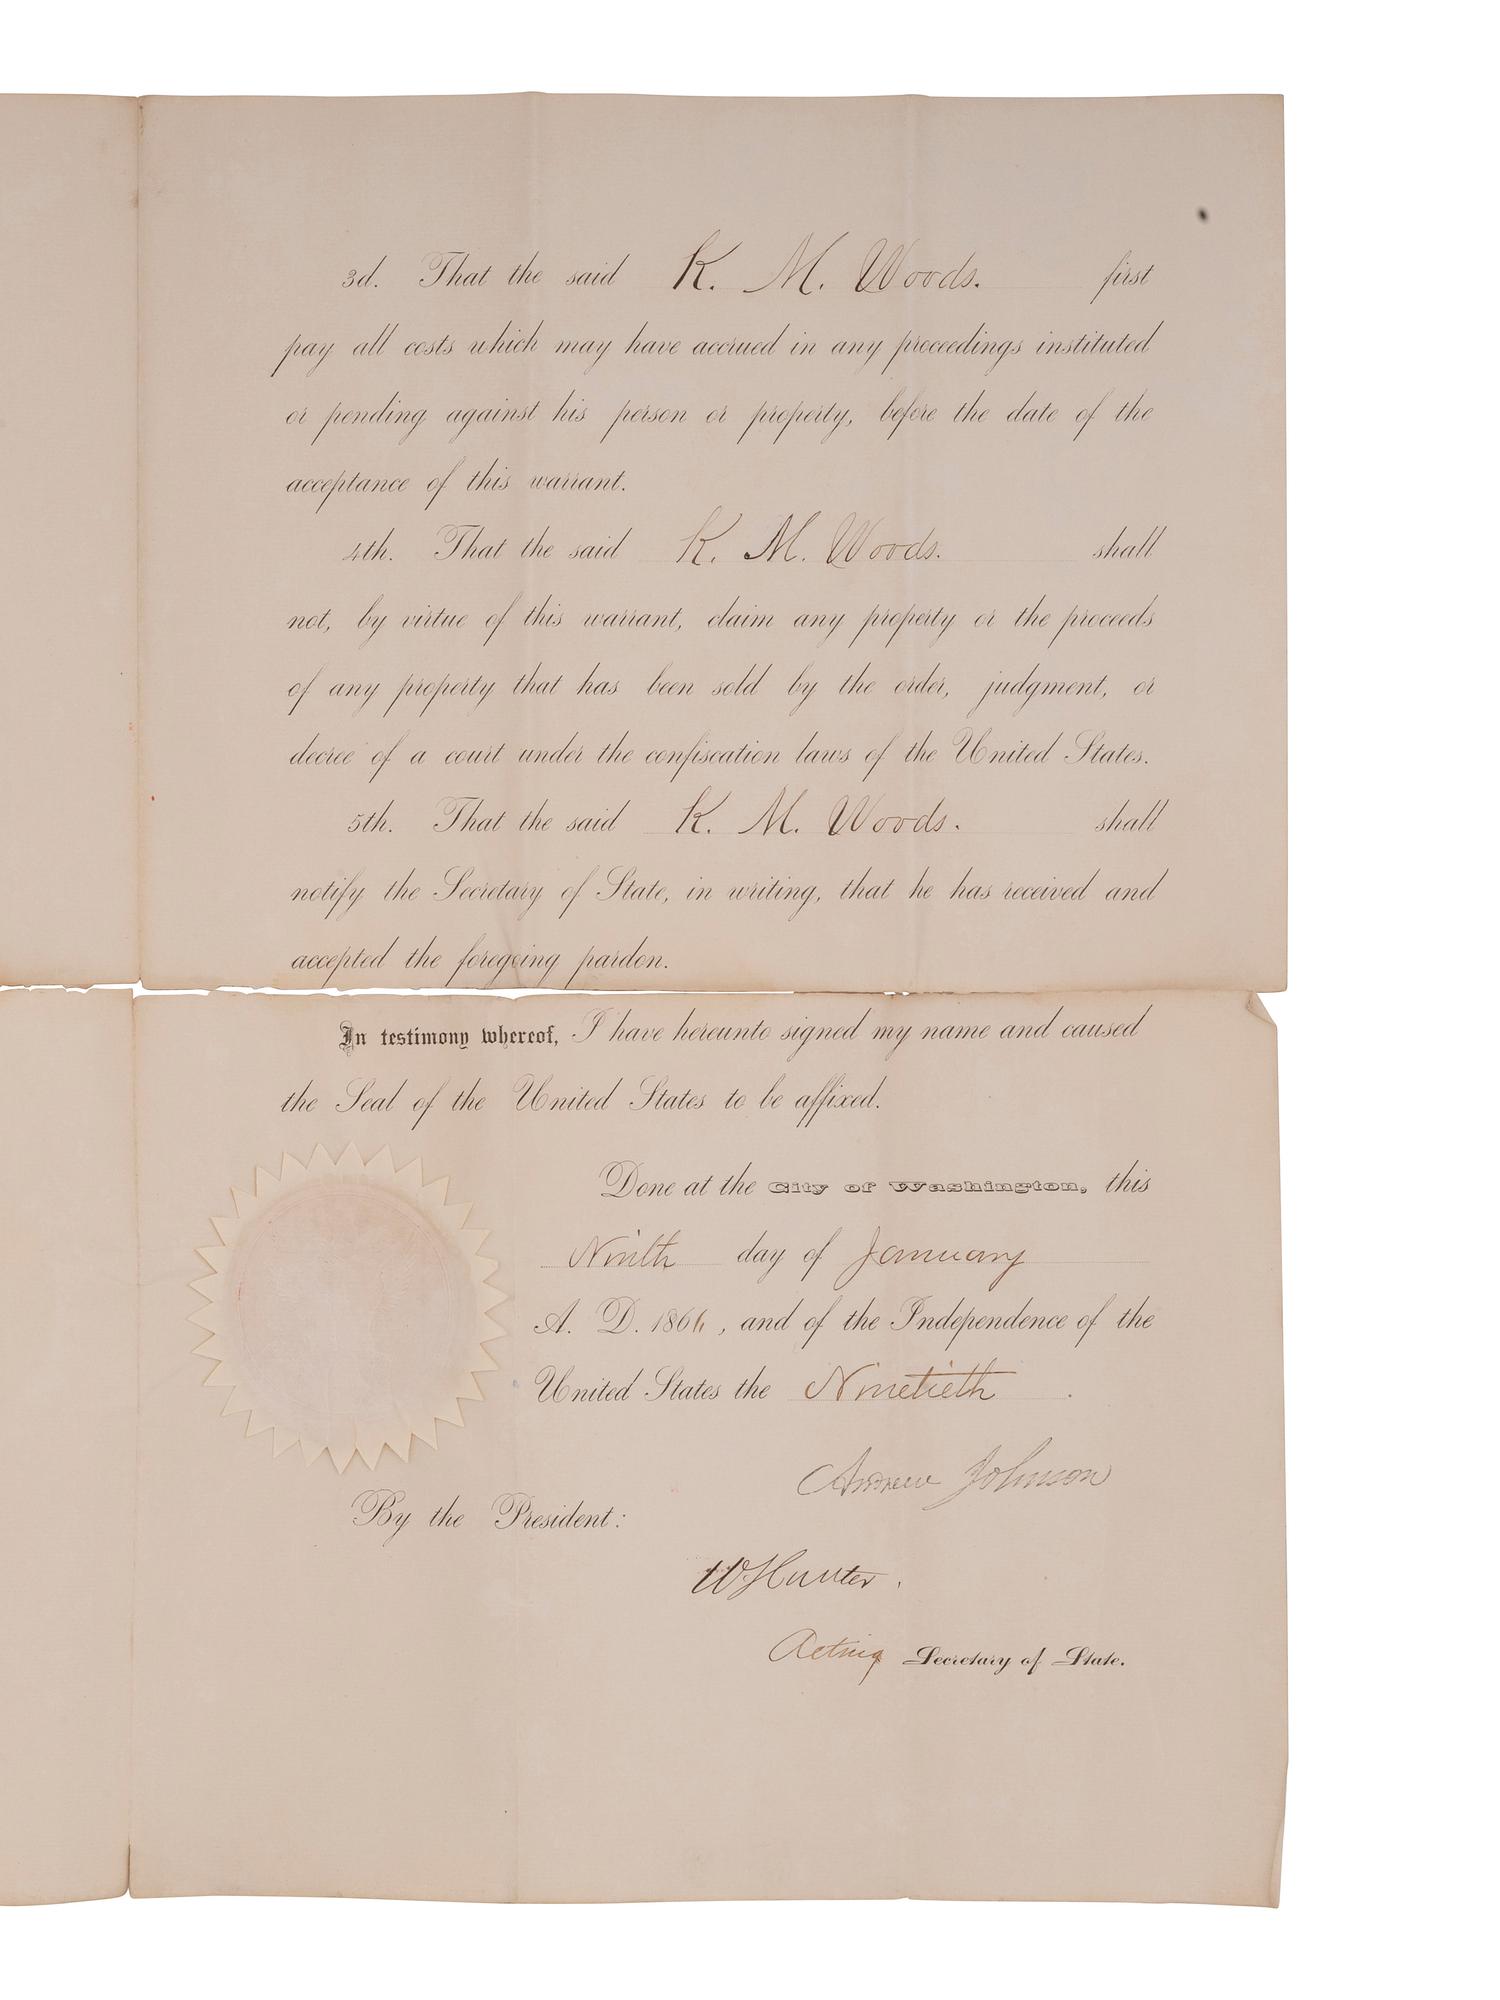 3d. That the said K. M. Woods. first
pay all costs which may have accrued in any proceedings instituted
or pending against his person or property, before the date of the
acceptance of this warrant.
4th. That the said K. M. Woods. shall
not, by virtue of this warrant, claim any property or the proceeds
of any property that has been sold by the order, judgment, or
decree of a court under the confiscation laws of the United States.
5th. That the said K. M. Woods. shall
notify the Secretary of State, in writing, that he has received and
accepted the foregoing pardon.
In testimony whereof, I have hereunto signed my name and caused
the Seal of the United States to be affixed.
Done at the City of Washington, this
Ninth day of January
A. D. 1866, and of the Independence of the
United States the Ninetieth.
Andrew Johnson
By the President:
W Hunter.
Acting Secretary of State.